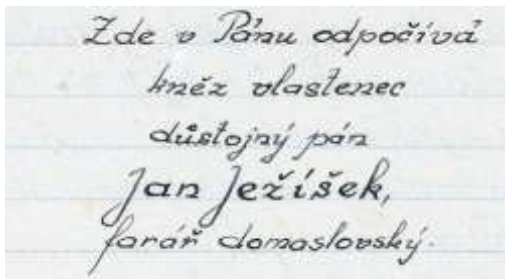 Zde v Pánu odpočívá
kněz vlastenec
důstojný pán
Jan Ježíšek,
farář domaslovský.